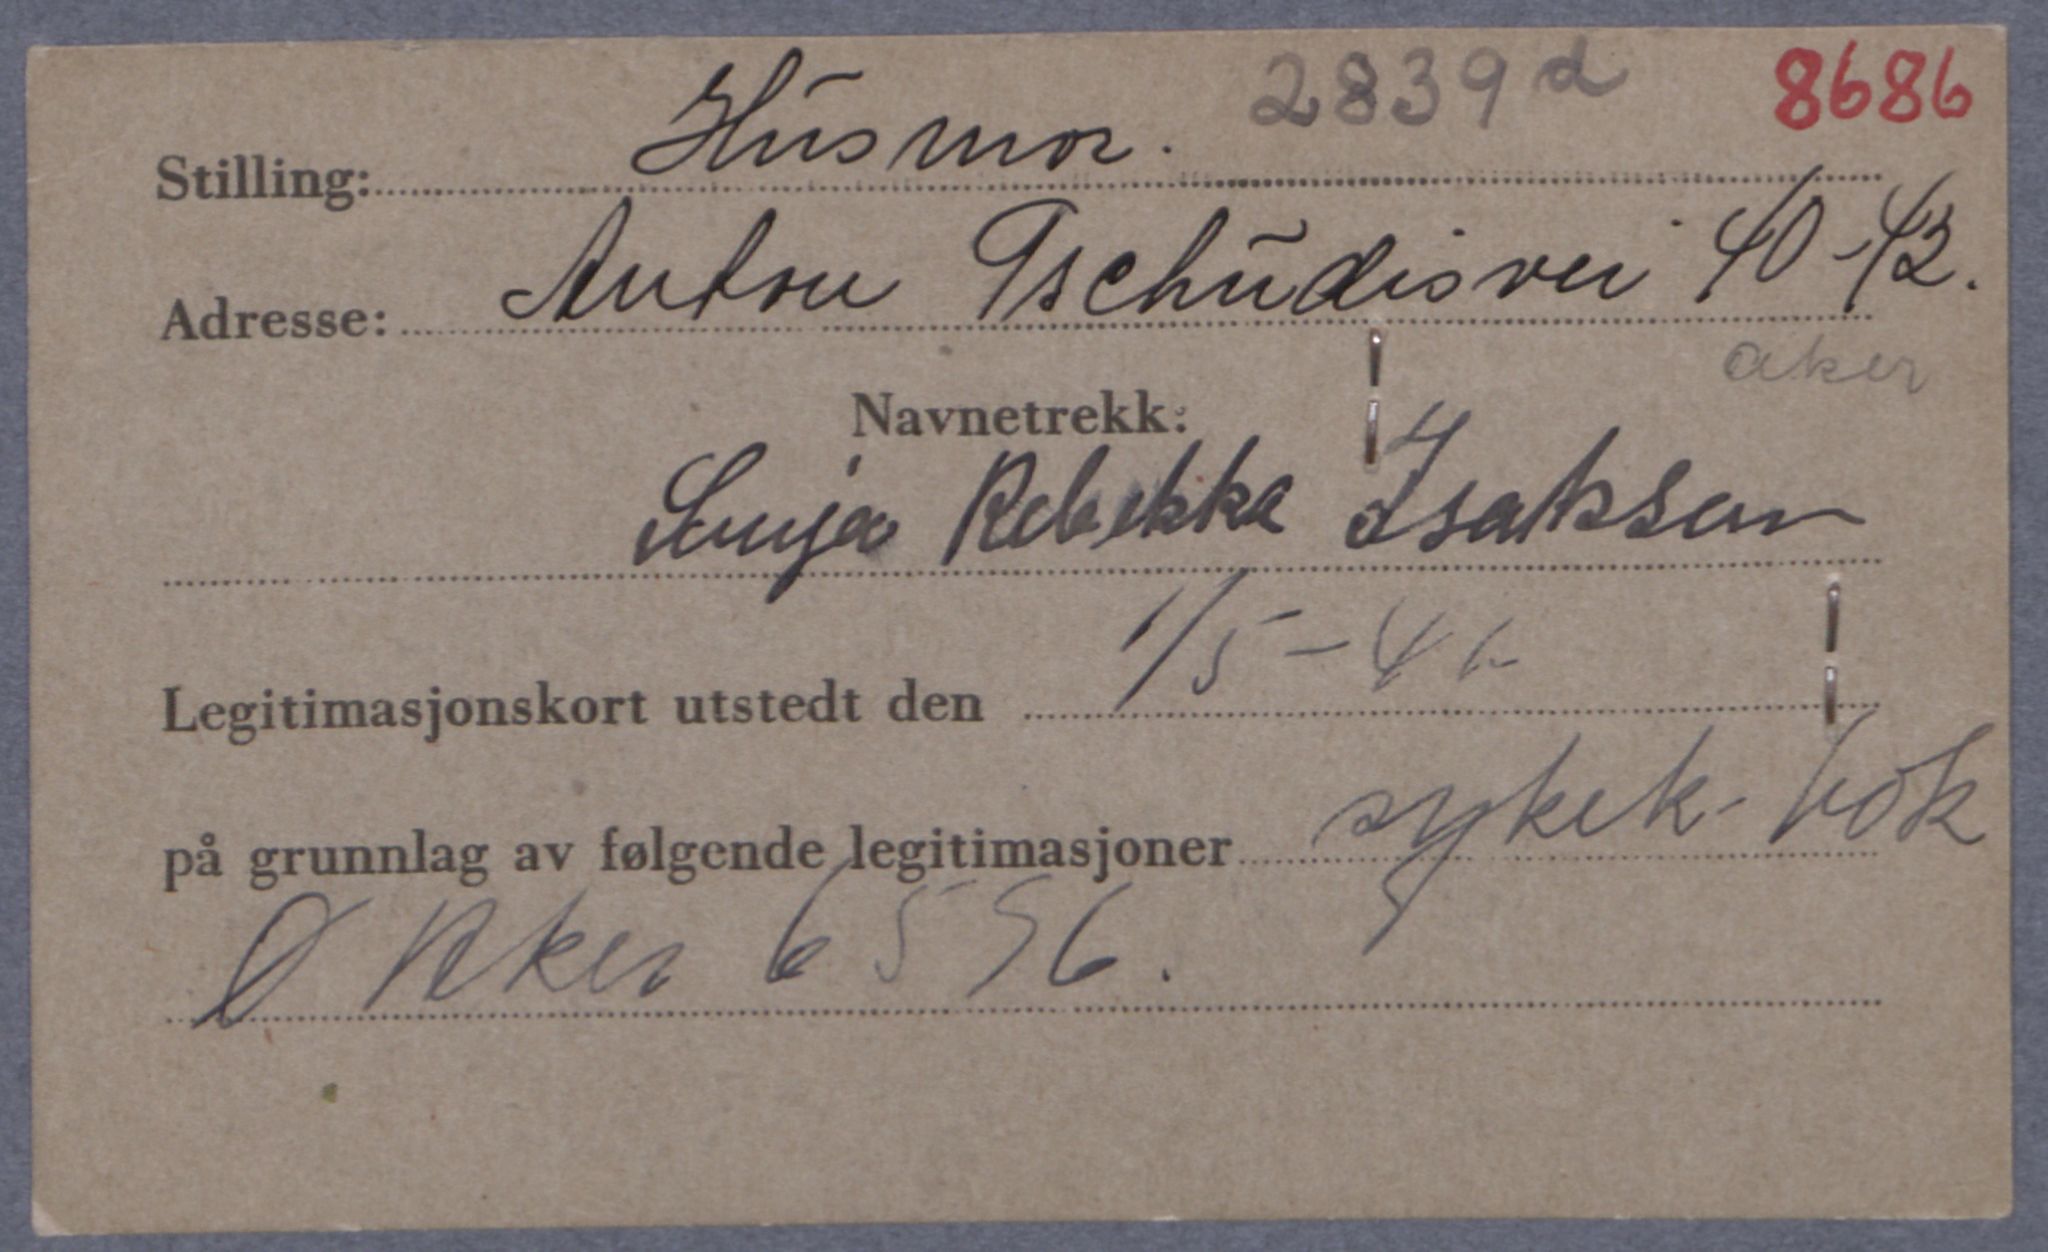 2839 d 8686
Stilling: Husmor.
Adresse: Anton Tschudisvei 40-42.
aker
Navnetrekk:
Sonja Rebekka Isaksen
Legitimasjonskort utstedt den 1/5-41
på grunnlag av følgende legitimasjoner sykek-bok
Ø Aker 6596.